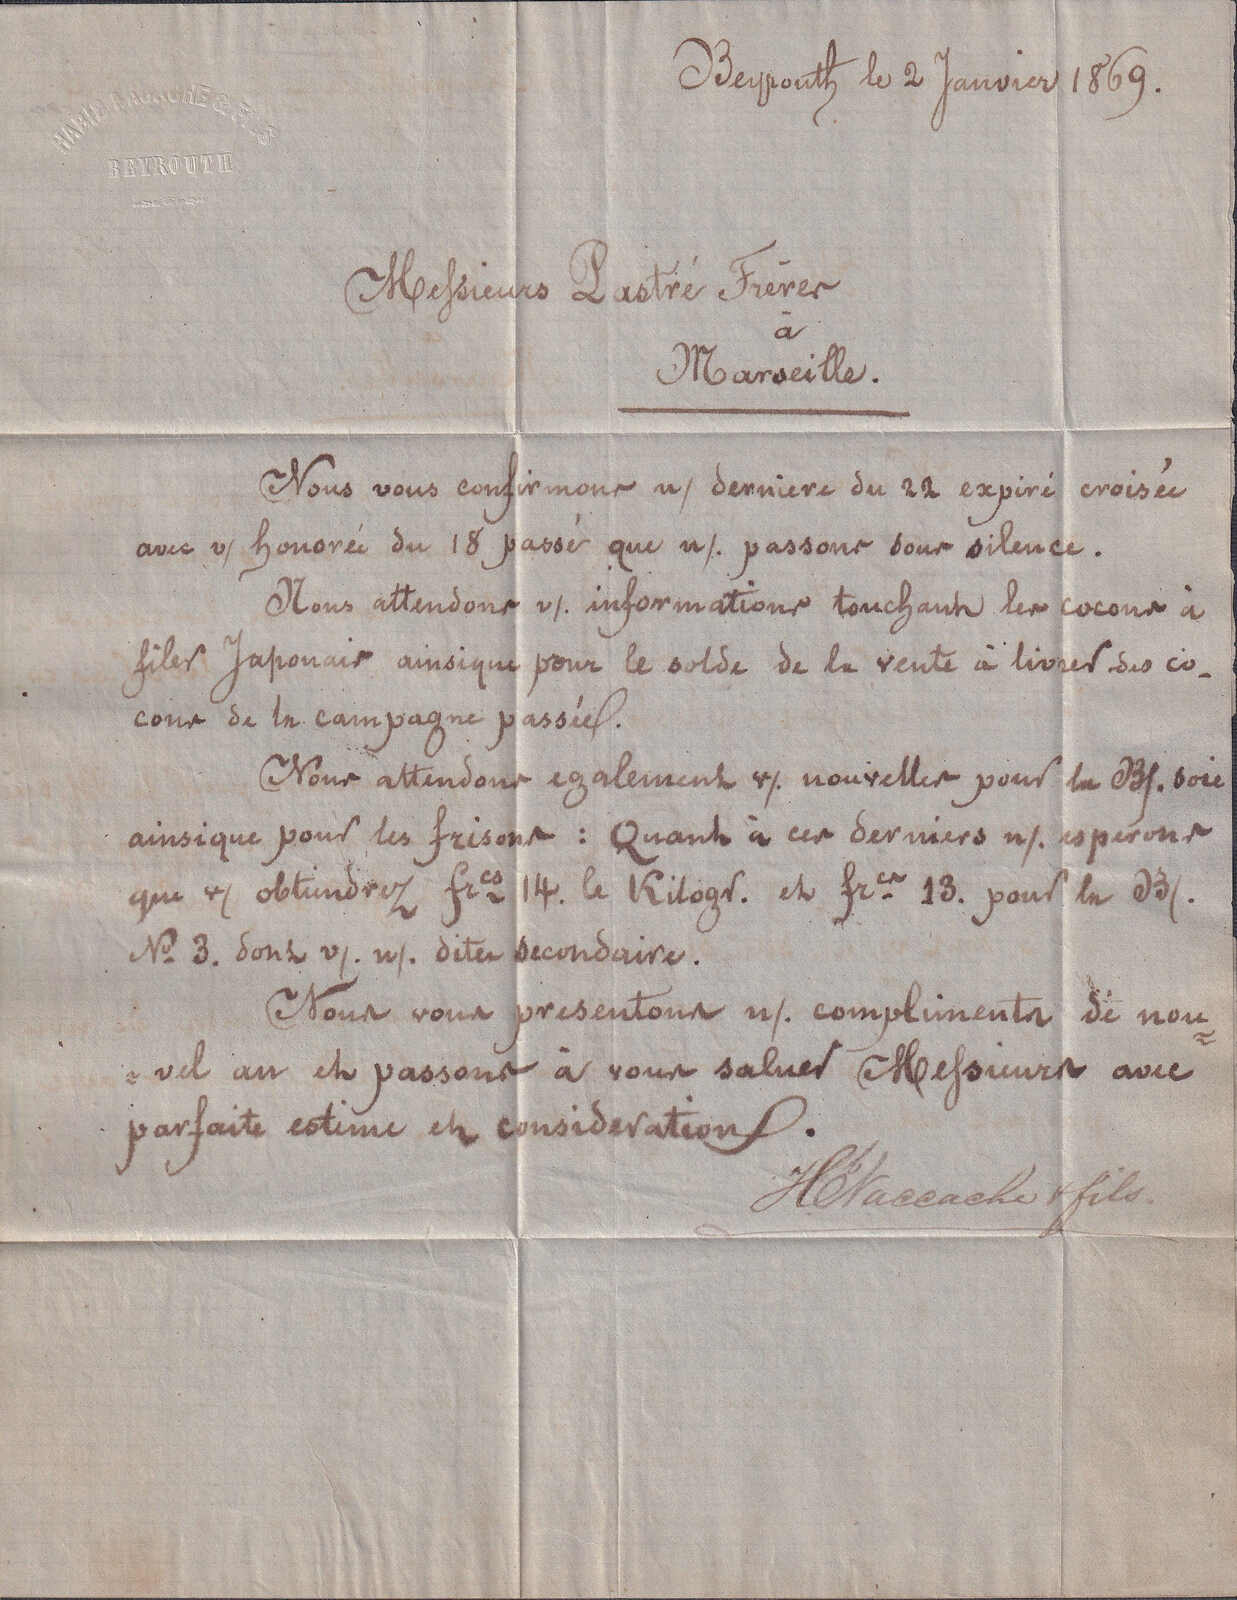 HABIB NACCACHE & FILS
BEYROUTH
Beyrouth le 2 Janvier 1869.
Messieurs Pastré Frères
à
Marseille.
Nous vous confirmons n/ derniere du 22 expiré croisée
avec v/ honorée du 18 passé que n/. passons sous silence.
Nous attendons v/. informations touchant les cocons à
filer Japonais ainsique pour le solde de la vente à livrer des co-
cons de la campagne passée.
Nous attendons egalement v/. nouvelles pour la B/. soie
ainsique pour les frisons : Quant à ces derniers n/. esperons
que v/ obtiendrez frcs 14. le Kilogr. et frcs 13. pour la B/.
No 3. dont v/. n/. dites secondaire.
Nous vous presentons n/. compliments de nou=
=vel an et passons à vous saluer Messieurs avec
parfaite estime et consideration.
H. Naccache & fils.